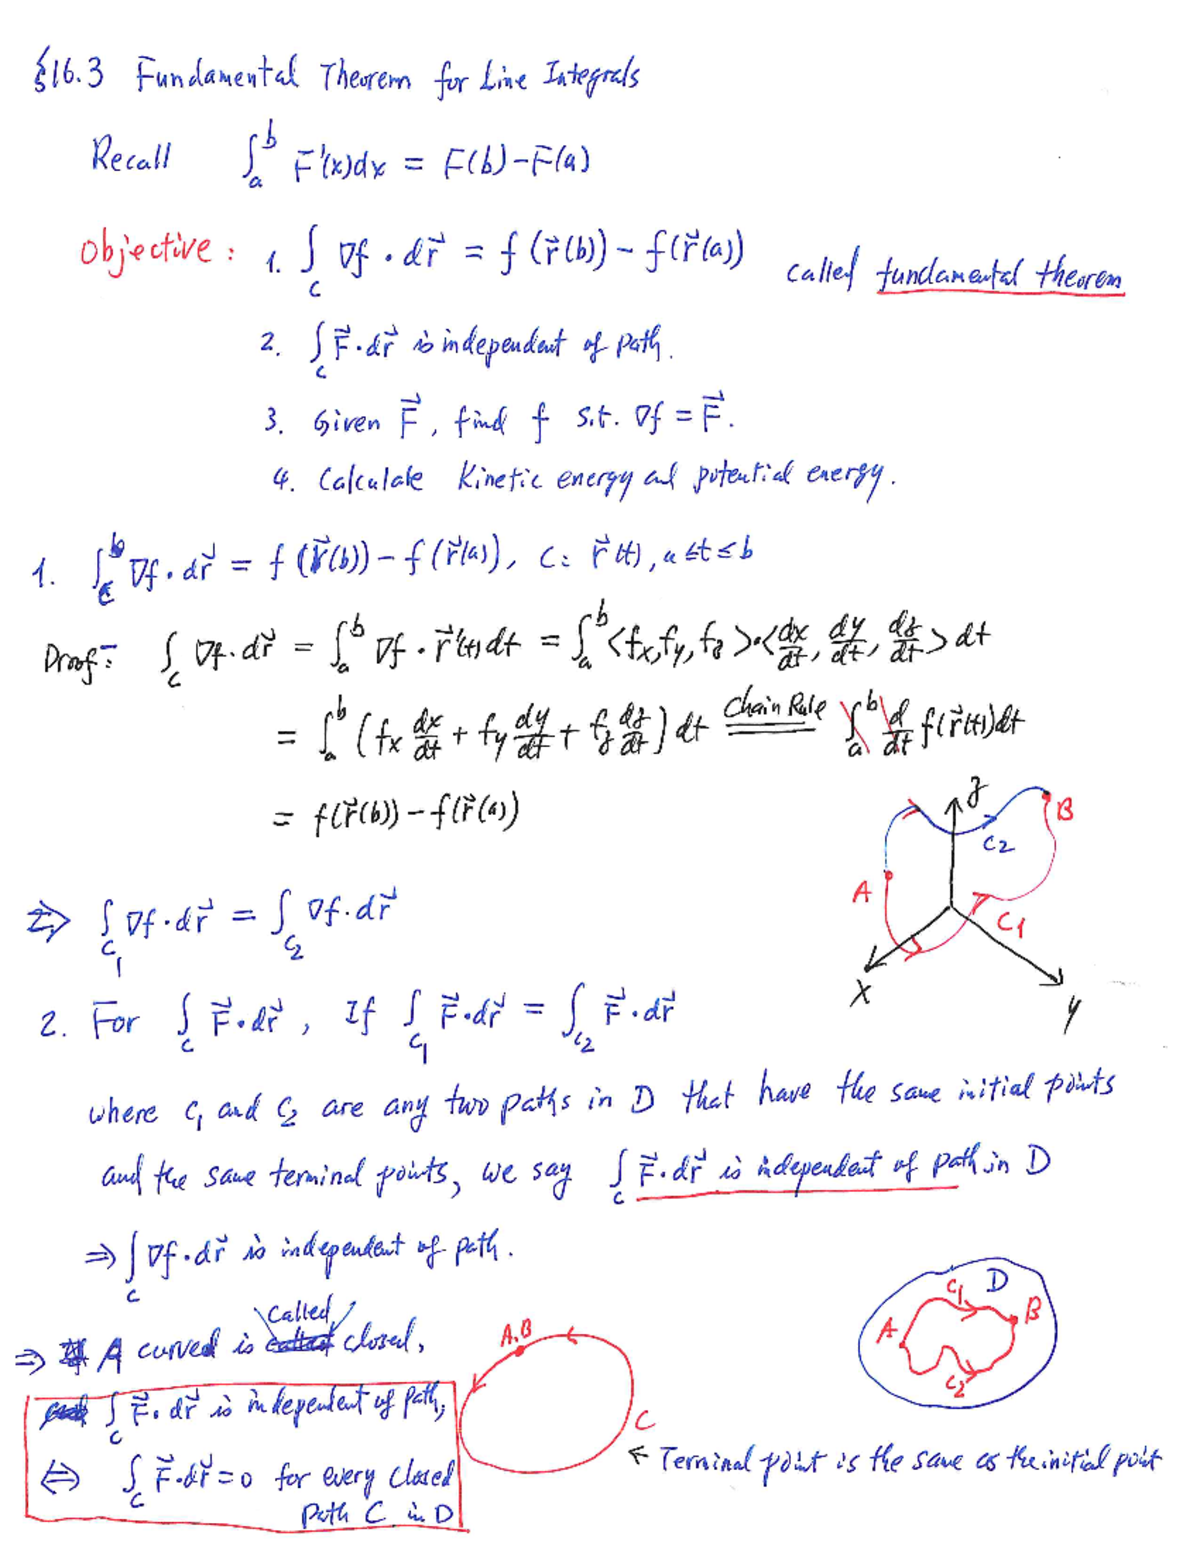 §16.3 Fundamental Theorem for Line Integrals
Recall ∫_a^b F'(x)dx = F(b)-F(a)
Objective: 1. ∫_C ∇f · dr⃗ = f(r⃗(b)) - f(r⃗(a)) called fundamental theorem
2. ∫_C F⃗·dr⃗ is independent of path.
3. Given F⃗, find f s.t. ∇f = F⃗.
4. Calculate Kinetic energy and potential energy.
1. ∫_C^b ∇f · dr⃗ = f(r⃗(b)) - f(r⃗(a)), C: r⃗(t), a≤t≤b
Proof: ∫_C ∇f·dr⃗ = ∫_a^b ∇f · r⃗'(t)dt = ∫_a^b <f_x,f_y,f_z>·<dx/dt, dy/dt, dz/dt> dt
= ∫_a^b (f_x dx/dt + f_y dy/dt + f_z dz/dt) dt Chain Rule = ∫_a^b d/dt f(r⃗(t))dt
= f(r⃗(b)) - f(r⃗(a))
z
B
C2
A
C1
x
y
⇒ ∫_{C_1} ∇f·dr⃗ = ∫_{C_2} ∇f·dr⃗
2. For ∫_C F⃗·dr⃗, If ∫_{C_1} F⃗·dr⃗ = ∫_{C_2} F⃗·dr⃗
where C1 and C2 are any two paths in D that have the same initial points
and the same terminal points, we say ∫_C F⃗·dr⃗ is independent of path in D
⇒ ∫_C ∇f·dr⃗ is independent of path.
C1 D
A B
C2
called
⇒ A curved is closed,
A.B
C
∫_C F⃗·dr⃗ is independent of path,
⇔ ∫_C F⃗·dr⃗ = 0 for every closed
path C in D
← Terminal point is the same as the initial point